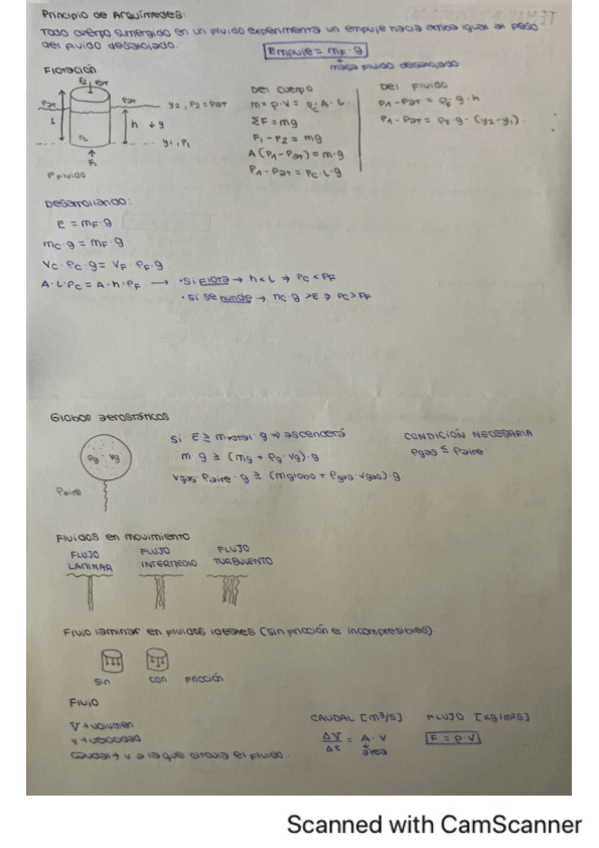 Principio de Arquímedes:
Todo cuerpo sumergido en un fluido experimenta un empuje hacia arriba igual al peso
del fluido desalojado.
Empuje = mF · g
masa fluido desalojado
Flotación
Pat
y2, P2 = Pat
L
h
↓ g
ρc
y1, P1
F1
ρ fluido
Del cuerpo
m = ρ · V = ρc · A · L
ΣF = mg
F1 - F2 = mg
A (P1 - Pat) = m · g
P1 - Pat = ρc · L · g
Del fluido
P1 - Pat = ρf · g · h
P1 - Pat = ρf · g · (y2 - y1).
Desarrollando:
E = mF · g
mc · g = mF · g
Vc · ρc · g = VF · ρF · g
A · L · ρc = A · h · ρF → · Si flota → h < L → ρc < ρF
· Si se hunde → mc · g > E → ρc > ρF
Globos aerostáticos
ρg
Vg
ρaire
Si E ≥ mtotal · g → ascenderá
m · g ≥ (mg + ρg · Vg) · g
Vgas · ρaire · g ≥ (mglobo + ρgas · Vgas) · g
CONDICIÓN NECESARIA
ρgas ≤ ρaire
Fluidos en movimiento
FLUJO LAMINAR
FLUJO INTERMEDIO
FLUJO TURBULENTO
Flujo laminar en fluidos ideales (sin fricción e incompresibles)
sin con fricción
Flujo
V → volumen
v → velocidad
caudal → v a la que circula el fluido.
CAUDAL [m³/s]
ΔV/Δt = A · v
área
FLUJO [kg/m²s]
F = ρ · v
Scanned with CamScanner